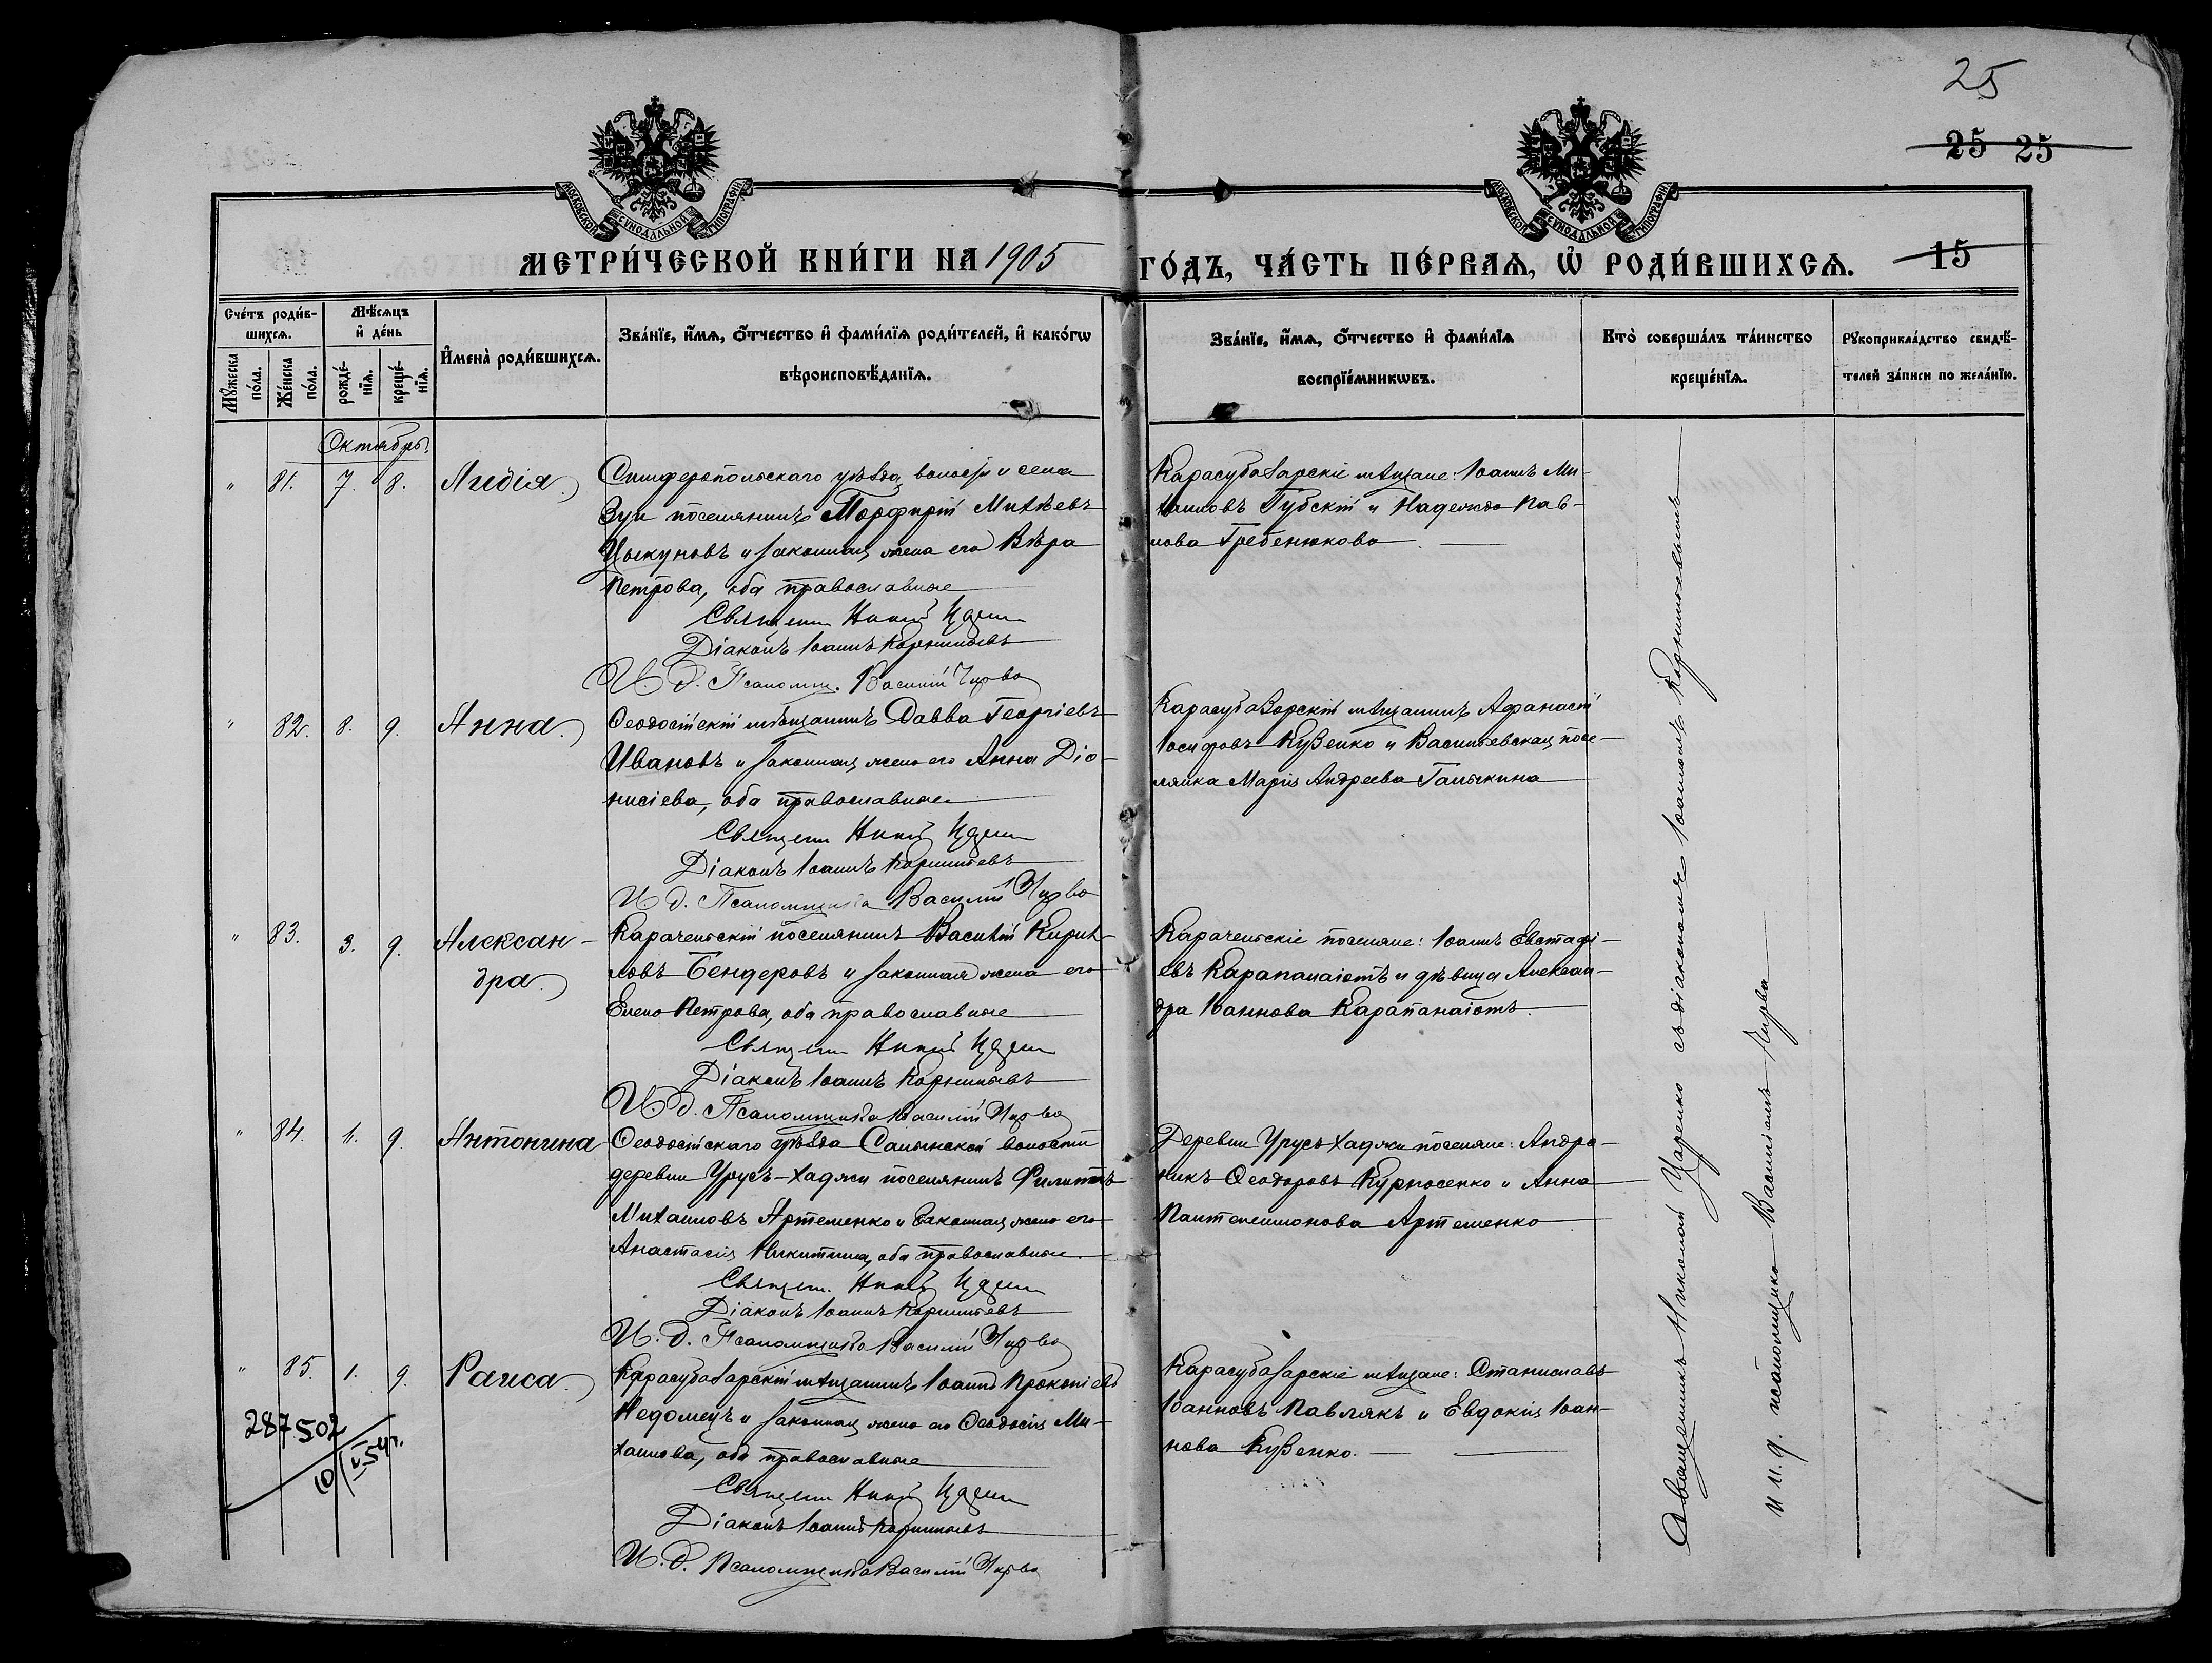 25
25 25
МОСКОВСКОЙ СѴНОДАЛЬНОЙ ТИПОГРАФІИ
МОСКОВСКОЙ СѴНОДАЛЬНОЙ ТИПОГРАФІИ
МЕТРИ́ЧЕСКОЙ КНИ́ГИ НА 1905 ГО́ДЪ, ЧА́СТЬ ПЕ́РВАѦ, Ѽ РОДИ́ВШИХСѦ. 15
Сче́тъ роди́в-
шихсѧ.
Мꙋ́жеска
по́ла.
Же́нска
по́ла.
Мѣ́сѧцъ
и҆ де́нь
рожде́-
нїѧ.
креще́-
нїѧ.
И҆мена̀ роди́вшихсѧ.
Зва́нїе, и҆́мѧ, ѻ҆́тчество и҆ фами́лїѧ роди́телей, и҆ како́гѡ
вѣроисповѣ́данїѧ.
Зва́нїе, и҆́мѧ, ѻ҆́тчество и҆ фами́лїѧ
воспрїе́мникѡвъ.
Кто̀ соверша́лъ та́инство
креще́нїѧ.
Рꙋкоприкла́дство свидѣ́-
телей за́писи по жела́нїю.
Октябрь.
" 81. 7. 8. Лидія.
Симферопольскаго уѣзда, волости и села
Зуи поселянинъ Порфирій Михѣевъ
Цыкуновъ и законная жена его Вѣра
Петрова, оба православные
Священ
Діаконъ Іоаннъ Корнильевъ
И. д. Псаломщ. Василій Чирва
Карасубазарскіе мѣщане: Іоаннъ Ми-
хаиловъ Губскій и Надежда Пав-
лова Гребенюкова
" 82. 8. 9. Анна.
Ѳеодосійскій мѣщанинъ Савва Георгіевъ
Ивановъ и законная жена его Анна Діо-
нисіева, оба православные
Священ
Діаконъ Іоаннъ Корнильевъ
И. д. Псаломщика Василій Чирва
Карасубазарскій мѣщанинъ Афанасій
Іосифовъ Кузенко и Васильевская посе-
лянка Марія Андреева Галыкина
" 83. 3. 9. Алексан-
дра.
Карачельскій поселянинъ Василій Кирил-
ловъ Бендеровъ и законная жена его
Елена Петрова, оба православные
Священ
Діаконъ Іоаннъ Корнильевъ
И. д. Псаломщика Василій Чирва
Карачельскіе поселяне: Іоаннъ Евстафі-
евъ Карапанаіотъ и дѣвица Алексан-
дра Іоаннова Карапанаіотъ.
" 84. 1. 9. Антонина
Ѳеодосійскаго уѣзда Салынской волости
деревни Урусъ-Хаджи поселянинъ Филиппъ
Михаиловъ Артеменко и законная жена его
Анастасія Никитина, оба православные
Священ.
Діаконъ Іоаннъ Корнильевъ
И. д. Псаломщика Василій Чирва
Деревни Урусъ Хаджи поселяне: Андро-
никъ Ѳеодоровъ Курносенко и Анна
Пантелеимонова Артеменко
" 85. 1. 9. Раиса.
Карасубазарскій мѣщанинъ Іоаннъ Прокопіевъ
Недомецъ и законная жена его Ѳеодосія Ми-
хаилова, оба православные
Священ
Діаконъ Іоаннъ Корнильевъ
И. д. Псаломщика Василій Чирва
Карасубазарскіе мѣщане: Станиславъ
Іоанновъ Павлякъ и Евдокія Іоан-
нова Кузенко.
287502
10/V-54г.
Священникъ Николай Царенко съ діакономъ Іоанномъ Корнильевымъ
и и. д. псаломщика Василіемъ Чирва